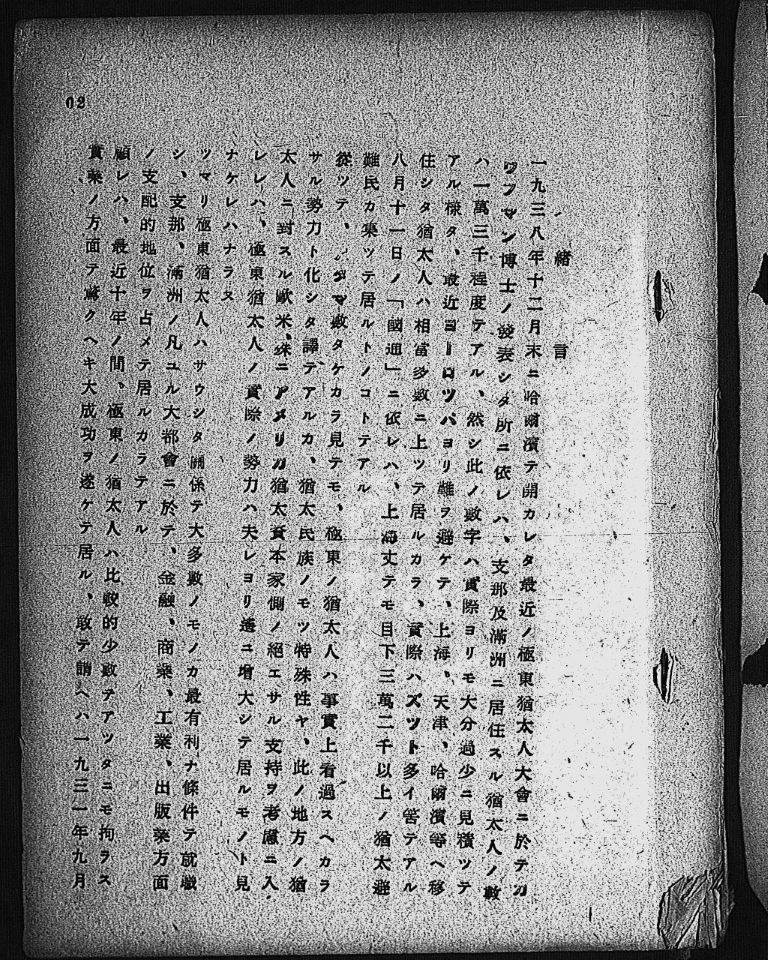 緒言
一九三八年十二月末ニ哈爾濱テ開カレタ最近ノ極東猶太人大會ニ於テカ
ウフマン博士ノ發表シタ所ニ依レハ、支那及滿洲ニ居住スル猶太人ノ數
ハ一萬三千程度テアル、然シ此ノ數字ハ實際ヨリモ大分過少ニ見積ツテ
アル樣タ、最近ヨーロツパヨリ難ヲ避ケテ、上海、天津、哈爾濱等ヘ移
住シタ猶太人ハ相當多數ニ上ツテ居ルカラ、實際ハズツト多イ筈テアル
八月十一日ノ「國通」ニ依レハ、上海丈テモ目下三萬二千以上ノ猶太避
難民カ集ツテ居ルトノコトテアル
從ツテ、數タケカラ見テモ、極東ノ猶太人ハ事實上看過スヘカラ
サル勢力ト化シタ譯テアルカ、猶太民族ノモツ特殊性ヤ、此ノ地方ノ猶
太人ニ對スル歐米、殊ニアメリカ猶太資本家側ノ絕エサル支持ヲ考慮ニ入
レレハ、極東猶太人ノ實際ノ勢力ハ夫レヨリ遙ニ增大シテ居ルモノト見
ナケレハナラス
ツマリ極東猶太人ハサウシタ關係テ大多數ノモノカ最有利ナ條件テ就職
シ、支那、滿洲ノ凡ユル大都會ニ於テ、金融、商業、工業、出版業方面
ノ支配的地位ヲ占メテ居ルカラテアル
顧レハ、最近十年ノ間、極東ノ猶太人ハ比較的少數テアツタニモ拘ラス
實業ノ方面テ驚クヘキ大成功ヲ遂ケテ居ル、敢テ謂ヘハ一九三一年九月
02